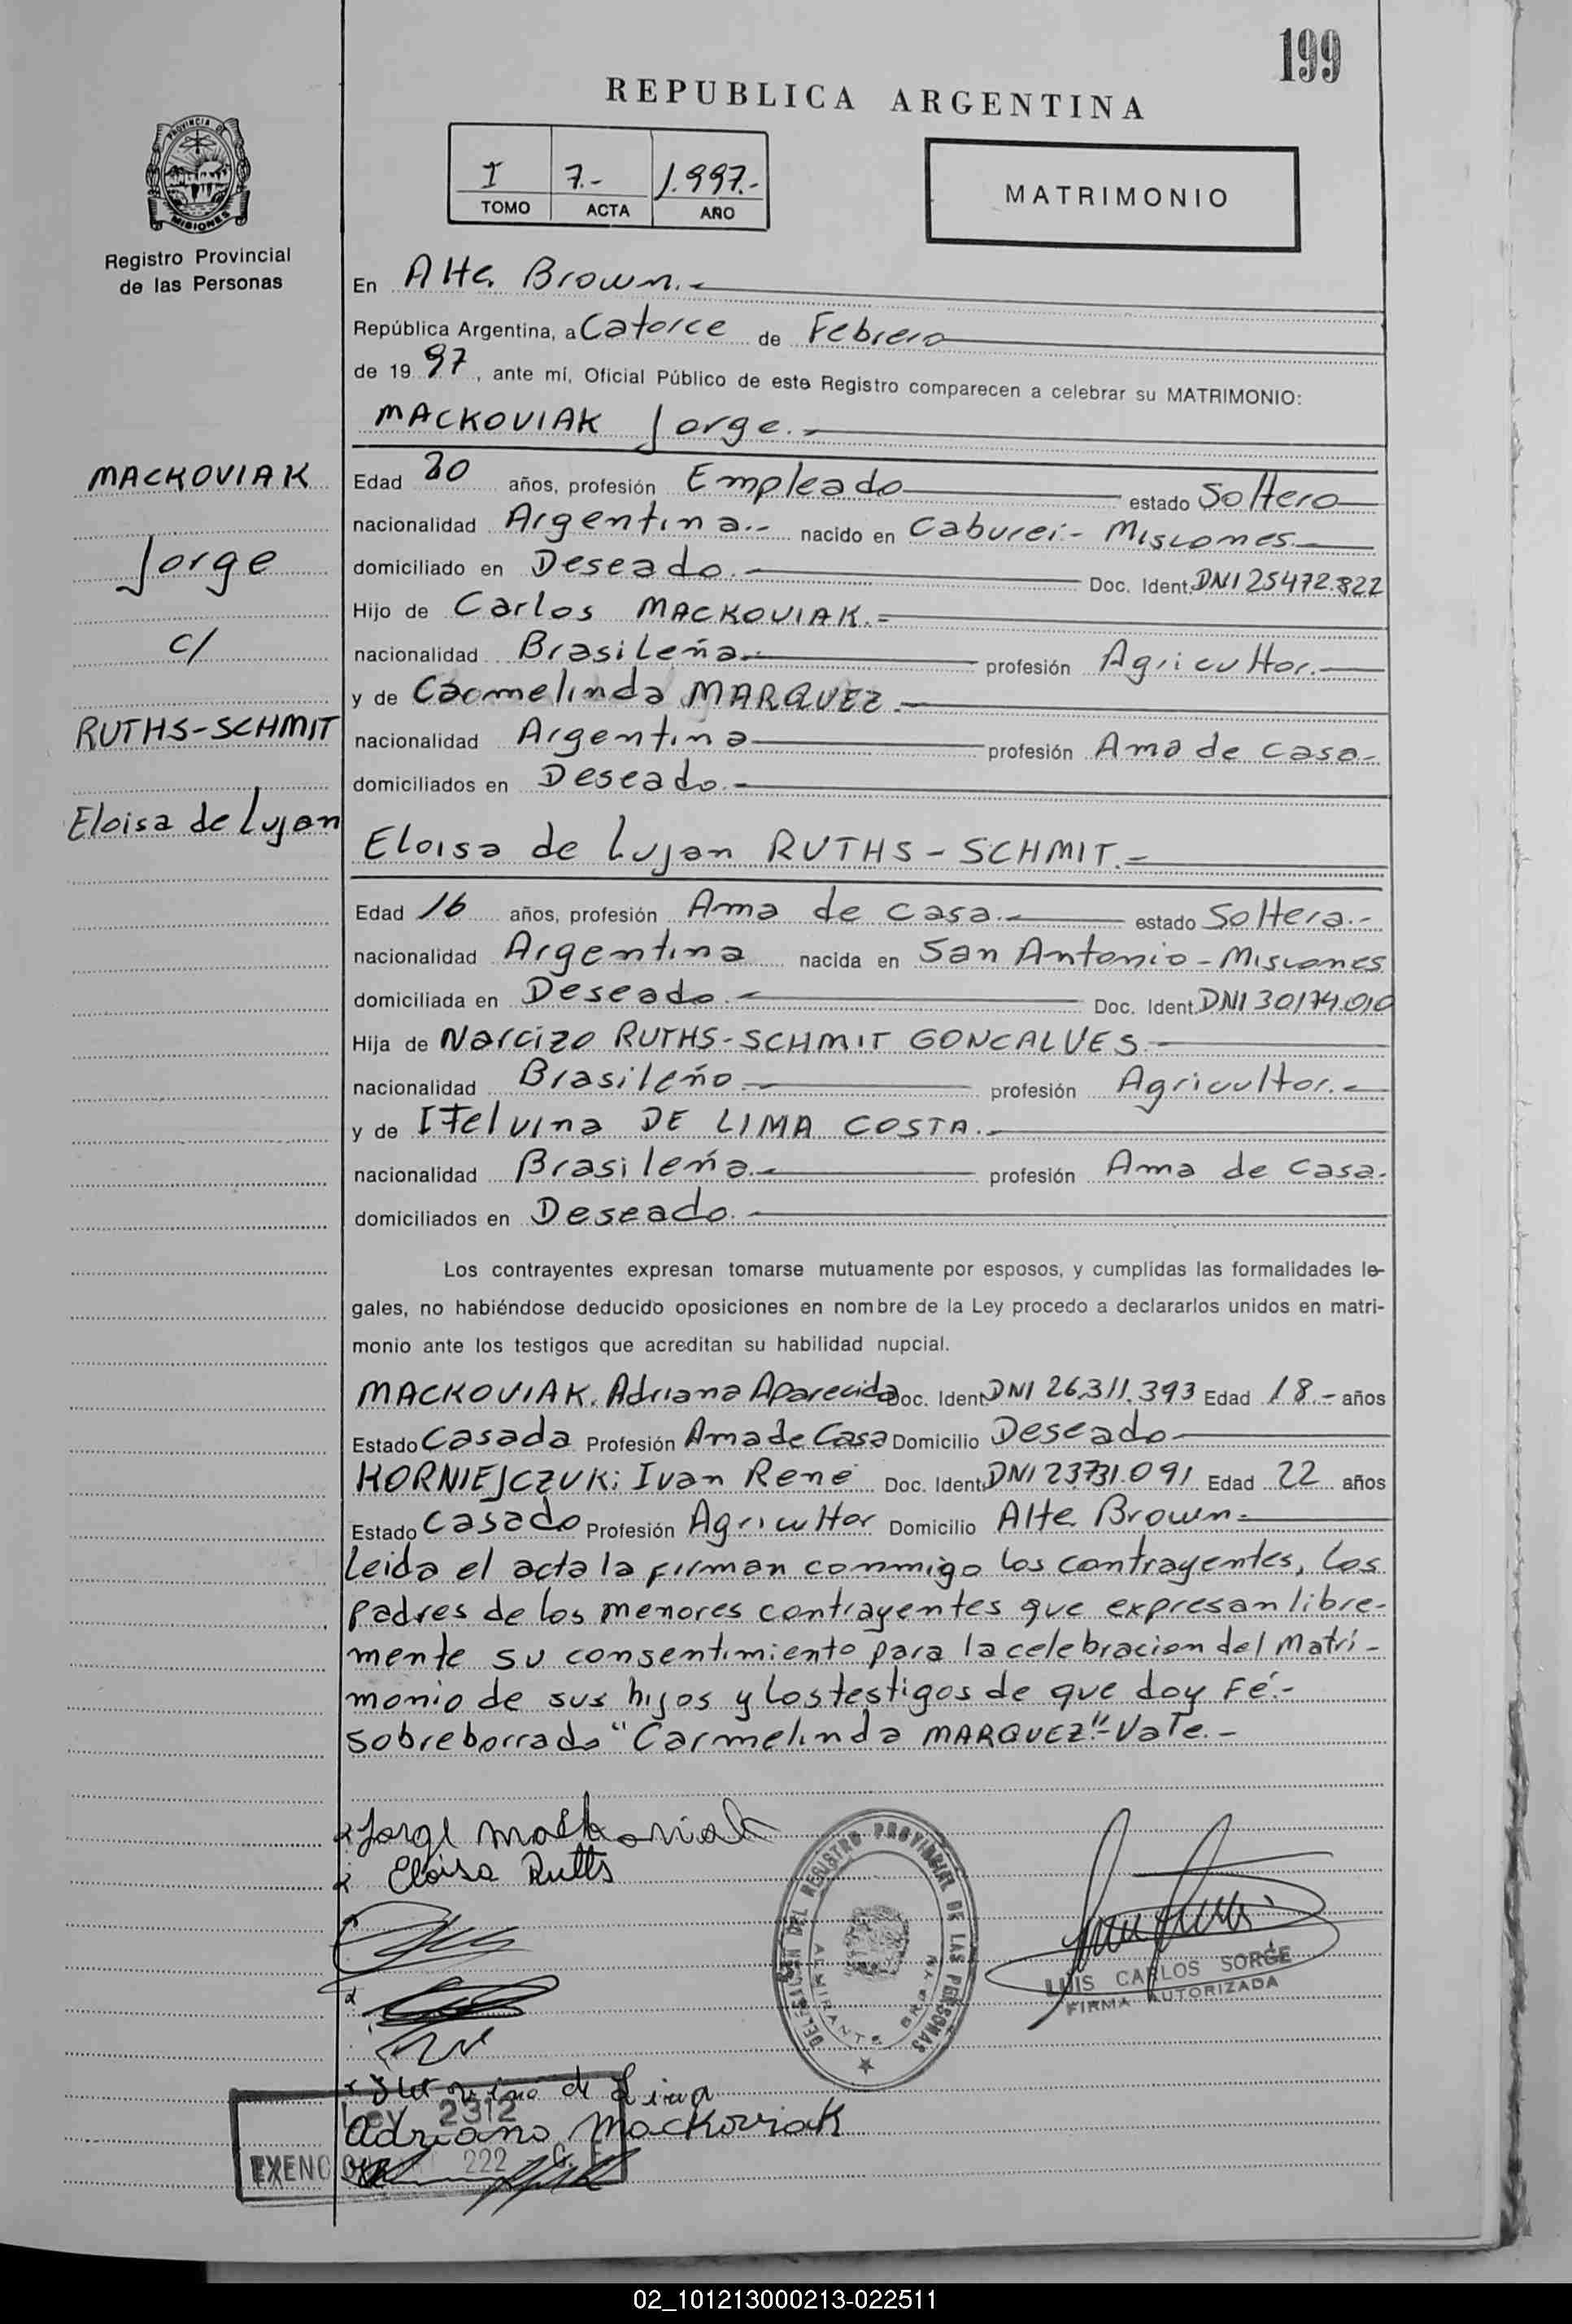 199
REPUBLICA ARGENTINA
PROVINCIA DE MISIONES
Registro Provincial
de las Personas
I 7.- 1.997.-
TOMO ACTA AÑO
MATRIMONIO
En Alte. Brown.-
República Argentina, a Catorce de Febrero
de 1997, ante mí, Oficial Público de este Registro comparecen a celebrar su MATRIMONIO:
MACKOVIAK Jorge.-
MACKOVIAK
Jorge
c/
RUTHS-SCHMIT
Eloisa de Lujan
Edad 20 años, profesión Empleado estado Soltero
nacionalidad Argentina.- nacido en Caburei.- Misiones.
domiciliado en Deseado.- Doc. Ident. DNI 25472.822
Hijo de Carlos MACKOVIAK.=
nacionalidad Brasileña.- profesión Agricultor.-
y de Carmelinda MARQUEZ.-
nacionalidad Argentina profesión Ama de casa.-
domiciliados en Deseado.-
Eloisa de Lujan RUTHS-SCHMIT.=
Edad 16 años, profesión Ama de casa.- estado Soltera.-
nacionalidad Argentina nacida en San Antonio-Misiones
domiciliada en Deseado.- Doc. Ident. DNI 30174.010
Hija de Narcizo RUTHS-SCHMIT GONCALVES.-
nacionalidad Brasileño.- profesión Agricultor.-
y de ITelvina DE LIMA COSTA.-
nacionalidad Brasileña.- profesión Ama de casa.
domiciliados en Deseado.
Los contrayentes expresan tomarse mutuamente por esposos, y cumplidas las formalidades le-
gales, no habiéndose deducido oposiciones en nombre de la Ley procedo a declararlos unidos en matri-
monio ante los testigos que acreditan su habilidad nupcial.
MACKOVIAK. Adriana Aparecida Doc. Ident. DNI 26.311.393 Edad 18.- años
Estado Casada Profesión Ama de Casa Domicilio Deseado
KORNIEJCZUK; Ivan Rene Doc. Ident. DNI 23731.091 Edad 22 años
Estado Casado Profesión Agricultor Domicilio Alte. Brown.=
Leida el acta la firman conmigo los contrayentes, los
padres de los menores contrayentes que expresan libre-
mente su consentimiento para la celebracion del Matri-
monio de sus hijos y los testigos de que doy Fé.-
Sobreborrado "Carmelinda MARQUEZ".-Vale.-
Jorge Mackoviak
Eloisa Rutts
DELEGACION DEL REGISTRO PROVINCIAL DE LAS PERSONAS
ALMIRANTE BROWN
LUIS CARLOS SORGE
FIRMA AUTORIZADA
de Lima
Ley 2312
Adriano Mackoviak
EXENC 222 C. F.
02_101213000213-022511